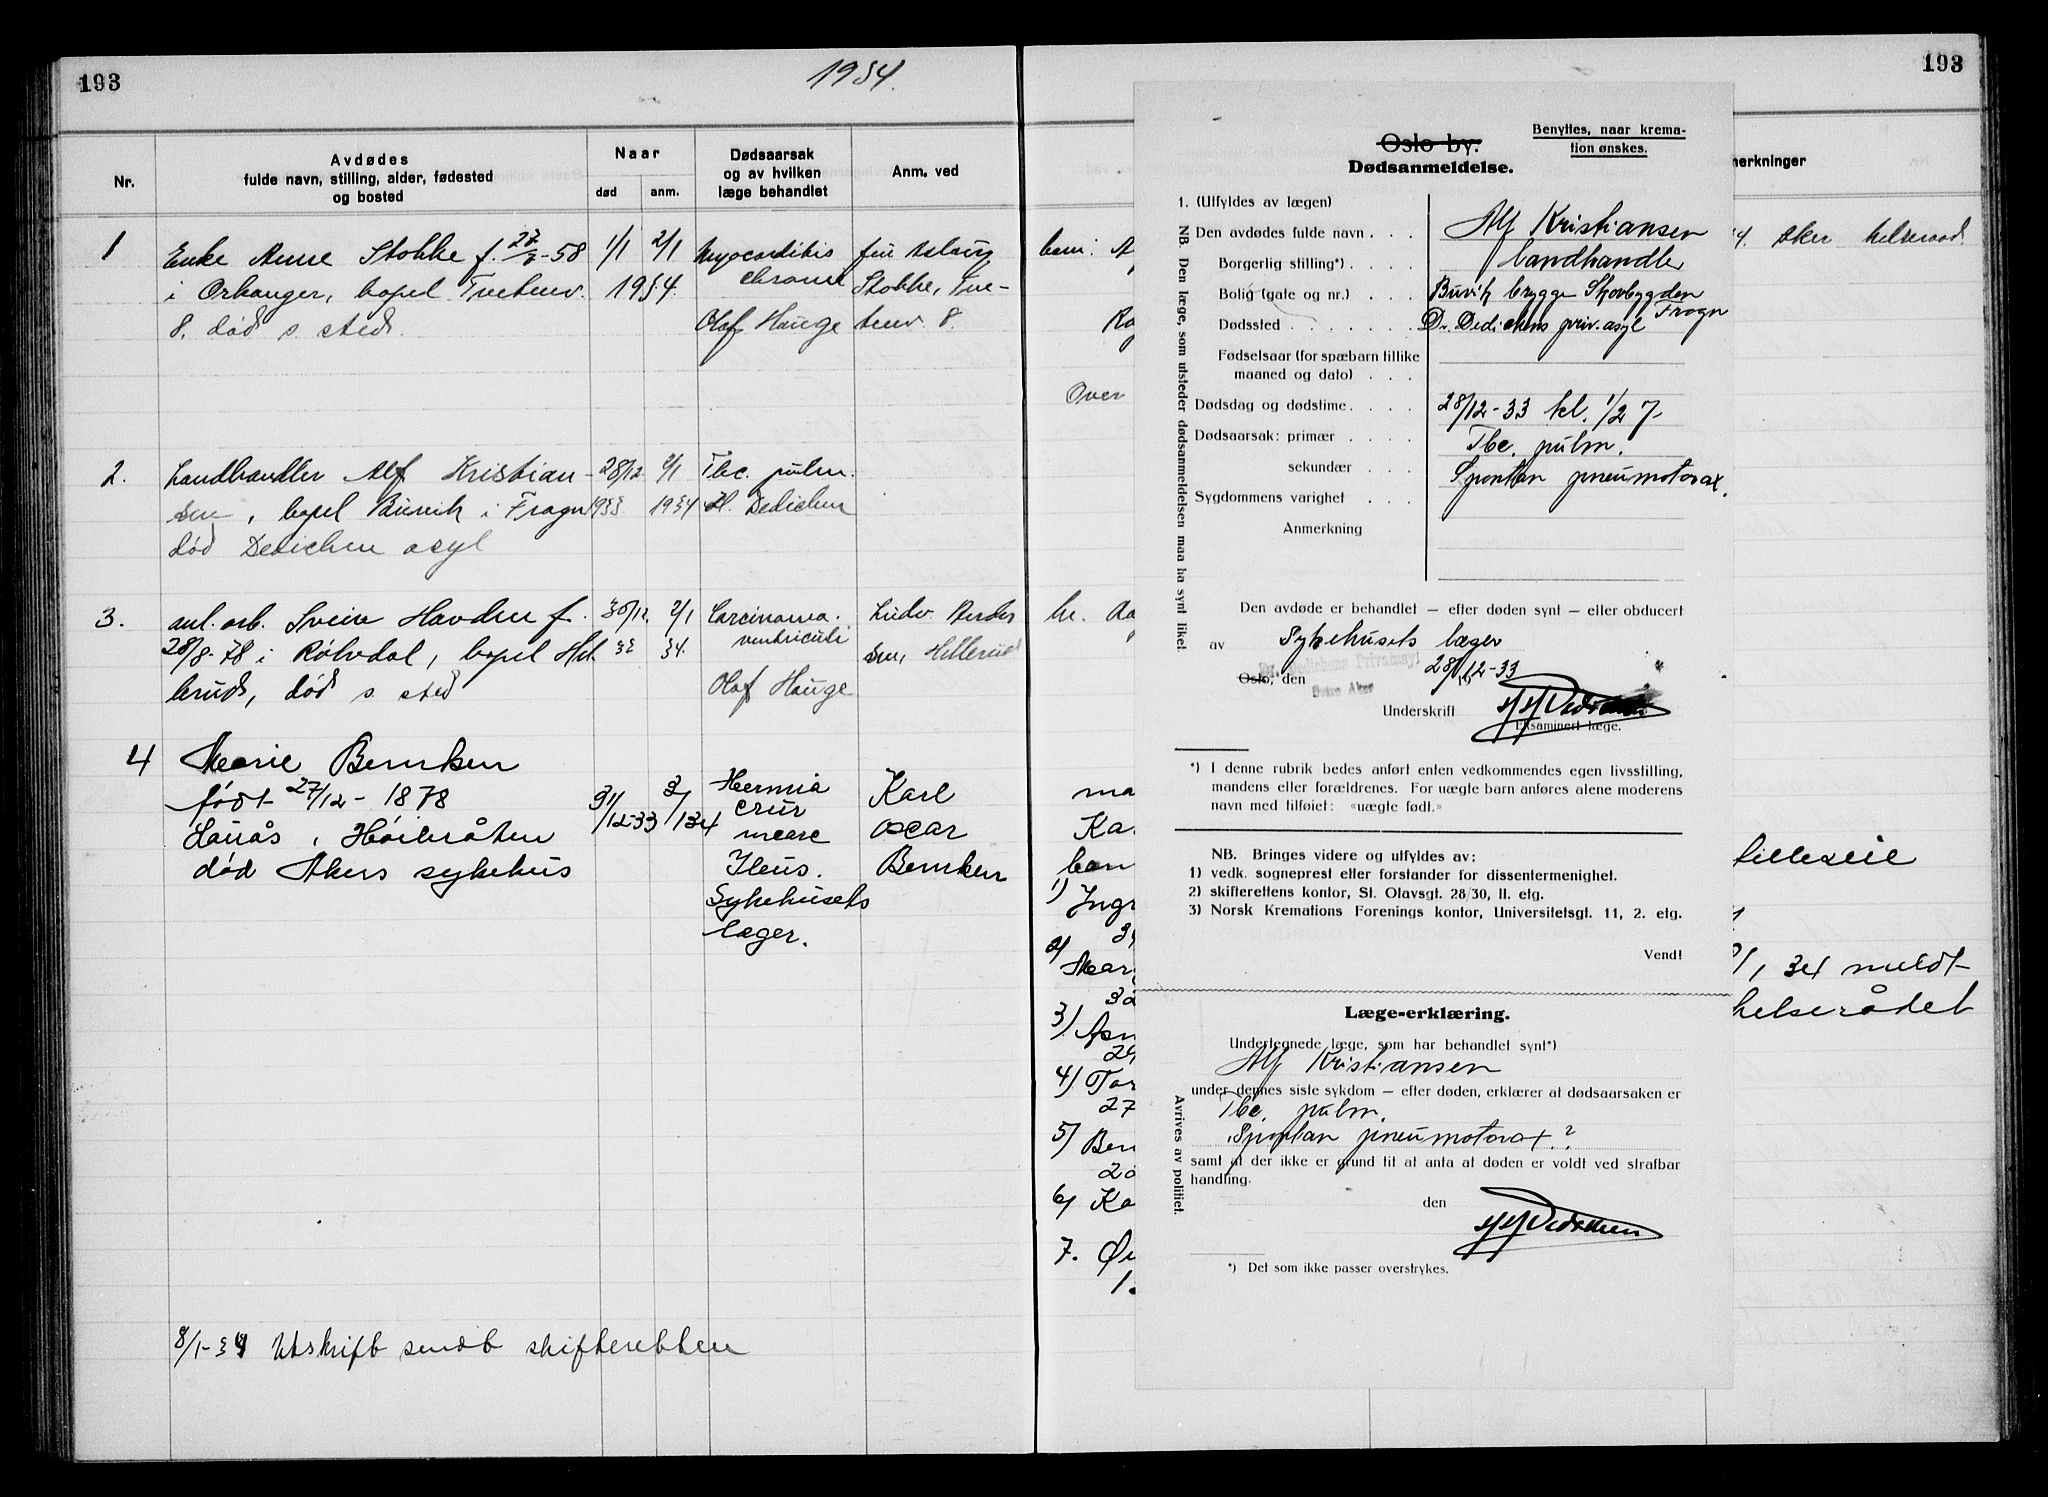 193
1934.
Nr.
Avdødes
fulde navn, stilling, alder, fødested
og bosted
Naar
død
anm.
Dødsaarsak
og av hvilken
læge behandlet
Anm. ved
1
Enke Anne Stokke f. -58
i Orkanger, bopel Tvetenv.
8. død s. sted.
1/1 2/1
1934.
Myocarditis
chronica
Olaf Hauge
fru Aslaug
Stokke, Tve-
tenv. 8.
2.
Landhandler Alf Kristian-
sen, bopel Buvik i Frogn
død Dedichen asyl
28/12 2/1
1933 1934
Tbc. pulm.
H. Dedichen
3.
anl. arb. Svein Havden f.
28/8-78 i , bopel Hel-
lerud, død s. sted
30/12 2/1
33 34.
Carcinoma
ventriculi
Olaf Hauge
Ludv. Ander
sen, Hellerud
4
Marie Bernken
født 27/12-1878
Lauås, Høibråten
død Akers sykehus
31/12-33 3/1 34
Hernia
crur
incarc
Ileus.
Sykehusets
læger.
Karl
Oscar
Bernken
8/1-34 Utskrift sendt skifteretten
193
merkninger
4. Aker helseraad.
Over
lilleseie
/1 34 meldt
helserådet
1) Ingr
2) Mar
3) Asn
4) Tor
27
5) Ber
6) Ka
7. Øi
Oslo by.
Dødsanmeldelse.
Benyttes, naar krema-
tion ønskes.
NB. Den læge, som utsteder dødsanmeldelsen maa ha synt liket.
1. (Utfyldes av lægen)
Den avdødes fulde navn . . . Alf Kristiansen
Borgerlig stilling*) . . . . landhandler
Bolig (gate og nr.) . . . Buvik brygge Skovbygden
Frogn
Dødssted . . . . . . . Dr. Dedichens priv. asyl
Fødselsaar (for spæbarn tillike
maaned og dato) . . .
Dødsdag og dødstime . . . . 28/12-33 kl. 1/2 7-
Dødsaarsak: primær . . . . Tbc. pulm.
sekundær . . . Spontan pneumotorax.
Sygdommens varighet . . .
Anmerkning
Den avdøde er behandlet — efter døden synt — eller obducert
av Sykehusets læger
Dr. Dedichens Privatasyl
Østre Aker
Oslo, den 28/12-33 19
Underskrift H. Dedichen
Eksaminert læge.
*) I denne rubrik bedes anført enten vedkommendes egen livsstilling,
mandens eller forældrenes. For uægte barn anføres alene moderens
navn med tilføiet: «uægte født.»
NB. Bringes videre og utfyldes av:
1) vedk. sogneprest eller forstander for dissentermenighet.
2) skifterettens kontor, St. Olavsgt. 28/30, II. etg.
3) Norsk Kremations Forenings kontor, Universitetsgt. 11, 2. etg.
Vend!
Læge-erklæring.
Undertegnede læge, som har behandlet synt*)
Alf Kristiansen
under dennes siste sykdom — efter døden, erklærer at dødsaarsaken er
Tbc. pulm.
Spontan pneumotorax.?
samt at der ikke er grund til at anta at døden er voldt ved strafbar
handling.
den
H. Dedichen
*) Det som ikke passer overstrykes.
Avrives av politiet.